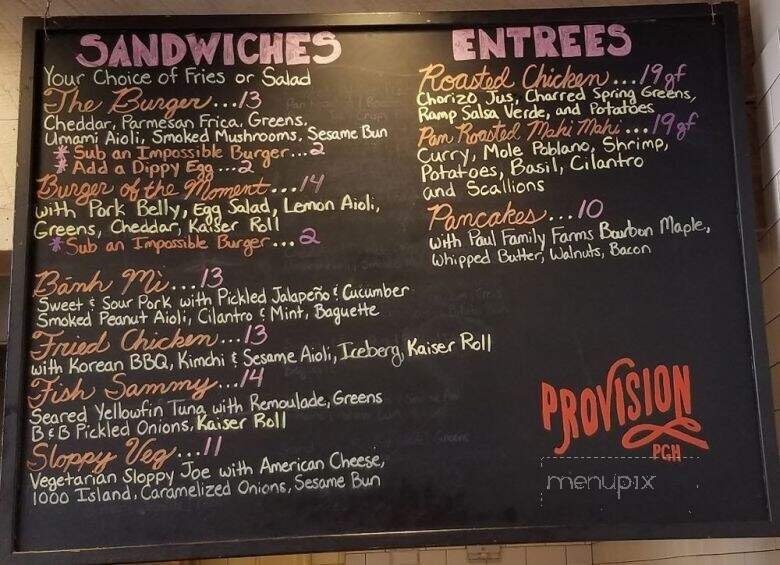 SANDWICHES
Your Choice of Fries or Salad
The Burger...13
Cheddar, Parmesan Frica, Greens,
Umami Aioli, Smoked Mushrooms, Sesame Bun
* Sub an Impossible Burger...2
* Add a Dippy Egg...2
Burger of the Moment...14
with Pork Belly, Egg Salad, Lemon Aioli,
Greens, Cheddar, Kaiser Roll
* Sub an Impossible Burger...2
Bánh Mì...13
Sweet & Sour Pork with Pickled Jalapeño & Cucumber
Smoked Peanut Aioli, Cilantro & Mint, Baguette
Fried Chicken...13
with Korean BBQ, Kimchi & Sesame Aioli, Iceberg, Kaiser Roll
Fish Sammy...14
Seared Yellowfin Tuna with Remoulade, Greens
B&B Pickled Onions, Kaiser Roll
Sloppy Veg...11
Vegetarian Sloppy Joe with American Cheese,
1000 Island, Caramelized Onions, Sesame Bun
ENTREES
Roasted Chicken...19 gf
Chorizo Jus, Charred Spring Greens,
Ramp Salsa Verde, and Potatoes
Pan Roasted Mahi Mahi...19 gf
Curry, Mole Poblano, Shrimp,
Potatoes, Basil, Cilantro
and Scallions
Pancakes...10
with Paul Family Farms Bourbon Maple,
Whipped Butter, Walnuts, Bacon
PROVISION
PGH
menupix